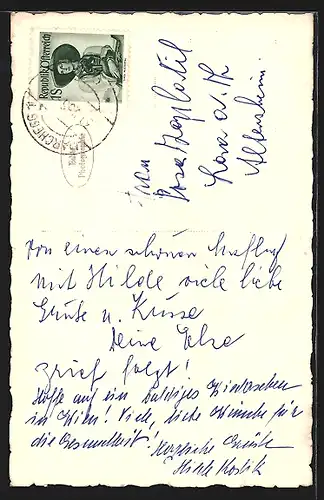 Republik Österreich
1 S
MARCHEGG
Frau
Rosa
Altersheim
Von einem schönen Ausflug
mit Hilde viele liebe
Grüße u. Küsse
Deine Else
Brief folgt!
Hoffe auf ein baldiges Wiedersehen
in Wien! Viele, liebe Wünsche für
die Gesundheit. Herzliche Grüße
Hilde